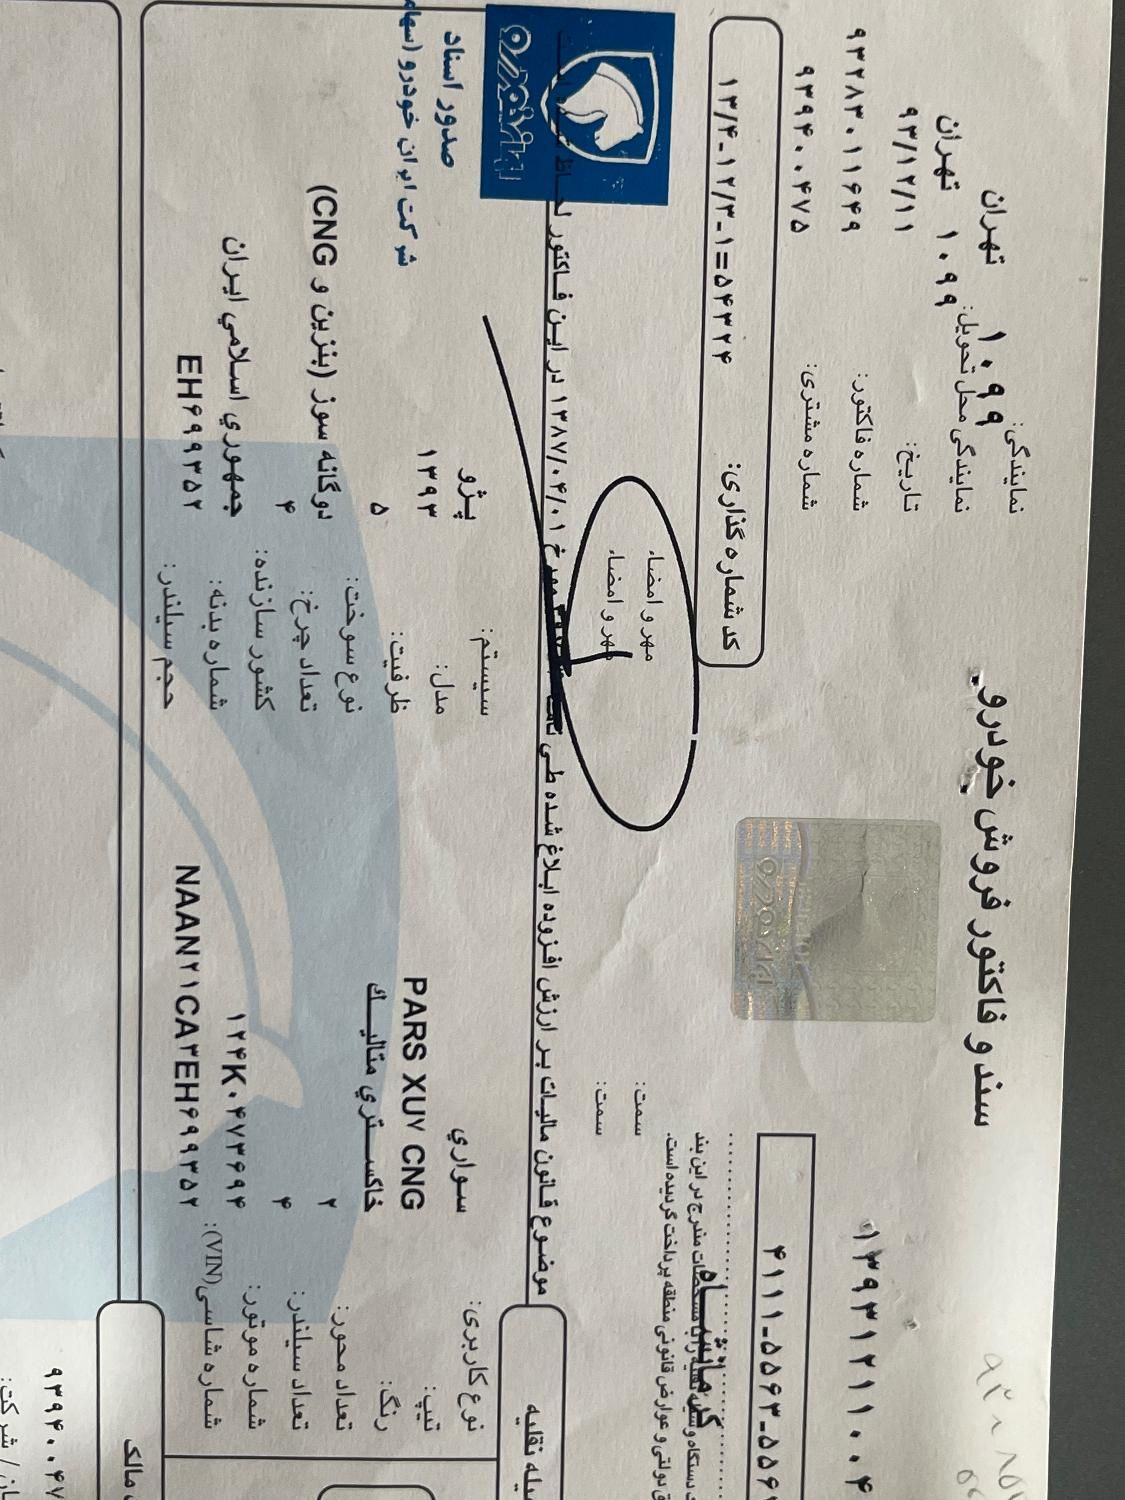 سند و فاکتور فروش خودرو
نمایندگی: ۱۰۹۹ تهران
نمایندگی محل تحویل: ۱۰۹۹ تهران
تاریخ: ۹۳/۱۲/۱۱
شماره فاکتور: ۹۳۲۸۳۰۱۱۶۴۹
شماره مشتری: ۹۳۹۴۰۰۴۷۵
۱۳۹۳۱۲۱۱۰۰۴
۴۱۱۱-۵۵۶۳-۵۵۶
کد شماره گذاری: ۱۳/۴-۱۲/۳-۱=۵۴۳۲۴
کرمانشاه
دستگاه وسیله نقلیه را با مشخصات مندرج در این بند
دولتی و عوارض قانونی منطقه پرداخت گردیده است.
سمت: مهر و امضاء
سمت: مهر و امضاء
موضوع قانون مالیات بر ارزش افزوده ابلاغ شده طی مورخ ۱۳۸۷/۰۴/۰۱ در این فاکتور لحاظ
ایران خودرو
یله نقلیه
نوع کاربری: سواري
سیستم: پژو
صدور اسناد
تیپ: PARS XU۷ CNG
مدل: ۱۳۹۳
شرکت ایران خودرو (سهام
رنگ: خاکستري متالیك
ظرفیت: ۵
تعداد محور: ۲
نوع سوخت: دوگانه سوز (بنزین و CNG)
تعداد سیلندر: ۴
تعداد چرخ: ۴
شماره موتور: ۱۲۴K۰۴۷۳۶۹۴
کشور سازنده: جمهوري اسلامي ایران
شماره شاسی (VIN): NAAN۲۱CA۳EH۶۹۹۳۵۲
شماره بدنه: EH۶۹۹۳۵۲
حجم سیلندر:
مالک
۹۳۹۴۰۰۴۷
شرکت: